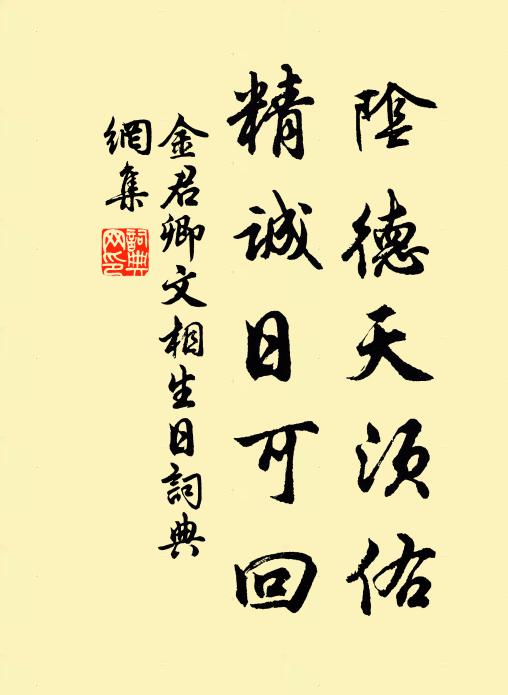 陰德天須佑
精誠日可回
金君卿文相生日詞典
網集
詞典
网印